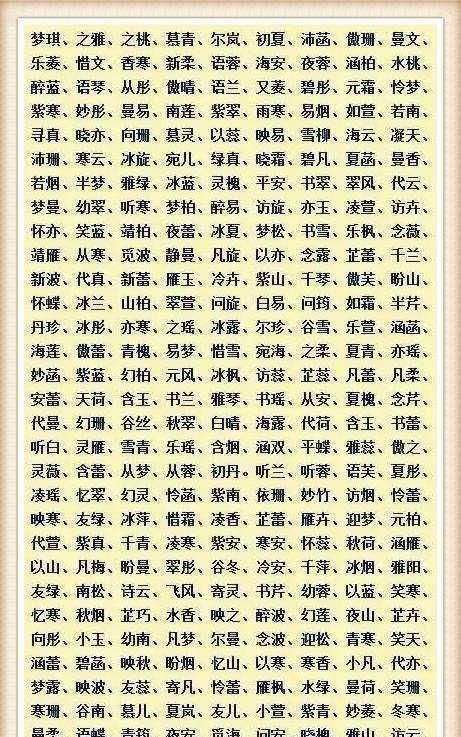 梦琪、之雅、之桃、慕青、尔岚、初夏、沛菡、傲珊、曼文、
乐菱、惜文、香寒、新柔、语蓉、海安、夜蓉、涵柏、水桃、
醉蓝、语琴、从彤、傲晴、语兰、又菱、碧彤、元霜、怜梦、
紫寒、妙彤、曼易、南莲、紫翠、雨寒、易烟、如萱、若南、
寻真、晓亦、向珊、慕灵、以蕊、映易、雪柳、海云、凝天、
沛珊、寒云、冰旋、宛儿、绿真、晓霜、碧凡、夏菡、曼香、
若烟、半梦、雅绿、冰蓝、灵槐、平安、书翠、翠风、代云、
梦曼、幼翠、听寒、梦柏、醉易、访旋、亦玉、凌萱、访卉、
怀亦、笑蓝、靖柏、夜蕾、冰夏、梦松、书雪、乐枫、念薇、
靖雁、从寒、觅波、静曼、凡旋、以亦、念露、芷蕾、千兰、
新波、代真、新蕾、雁玉、冷卉、紫山、千琴、傲芙、盼山、
怀蝶、冰兰、山柏、翠萱、问旋、白易、问筠、如霜、半芹、
丹珍、冰彤、亦寒、之瑶、冰露、尔珍、谷雪、乐萱、涵菡、
海莲、傲蕾、青槐、易梦、惜雪、宛海、之柔、夏青、亦瑶、
妙菡、紫蓝、幻柏、元风、冰枫、访蕊、芷蕊、凡蕾、凡柔、
安蕾、天荷、含玉、书兰、雅琴、书瑶、从安、夏槐、念芹、
代曼、幻珊、谷丝、秋翠、白晴、海露、代荷、含玉、书蕾、
听白、灵雁、雪青、乐瑶、含烟、涵双、平蝶、雅蕊、傲之、
灵薇、含蕾、从梦、从蓉、初丹。听兰、听蓉、语芙、夏彤、
凌瑶、忆翠、幻灵、怜菡、紫南、依珊、妙竹、访烟、怜蕾、
映寒、友绿、冰萍、惜霜、凌香、芷蕾、雁卉、迎梦、元柏、
代萱、紫真、千青、凌寒、紫安、寒安、怀蕊、秋荷、涵雁、
以山、凡梅、盼曼、翠彤、谷冬、冷安、千萍、冰烟、雅阳、
友绿、南松、诗云、飞风、寄灵、书芹、幼蓉、以蓝、笑寒、
忆寒、秋烟、芷巧、水香、映之、醉波、幻莲、夜山、芷卉、
向彤、小玉、幼南、凡梦、尔曼、念波、迎松、青寒、笑天、
涵蕾、碧菡、映秋、盼烟、忆山、以寒、寒香、小凡、代亦、
梦露、映波、友蕊、寄凡、怜蕾、雁枫、水绿、曼荷、笑珊、
寒珊、谷南、慕儿、夏岚、友儿、小萱、紫青、妙菱、冬寒、
曼柔、语蝶、青筠、夜安、觅海、问安、晓槐、雅山、访云、